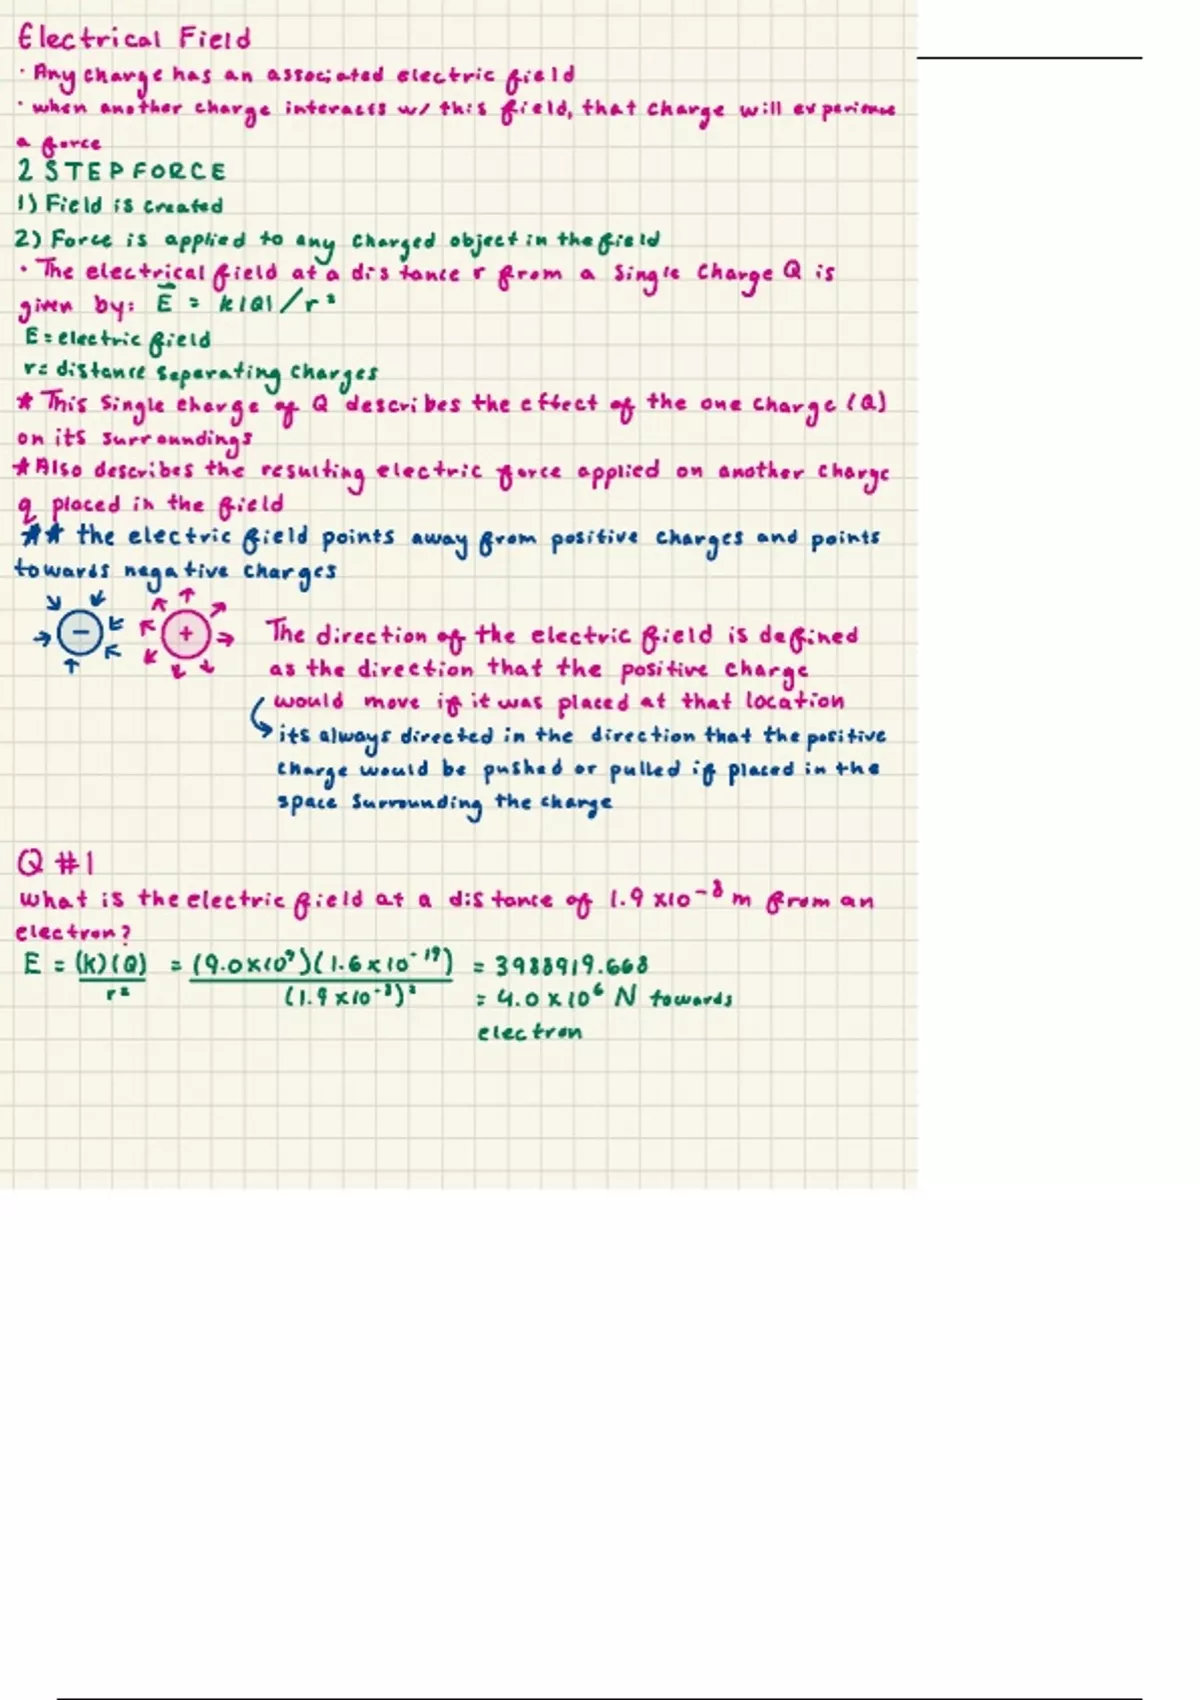 Electrical Field
• Any charge has an associated electric field
• when another charge interacts w/ this field, that charge will experience
a force
2 STEP FORCE
1) Field is created
2) Force is applied to any charged object in the field
• The electrical field at a distance r from a single charge Q is
given by: E⃗ = k|Q|/r²
E = electric field
r = distance separating charges
* This single charge of Q describes the effect of the one charge (Q)
on its surroundings
* Also describes the resulting electric force applied on another charge
q placed in the field
** the electric field points away from positive charges and points
towards negative charges
− +
The direction of the electric field is defined
as the direction that the positive charge
would move if it was placed at that location
its always directed in the direction that the positive
charge would be pushed or pulled if placed in the
space surrounding the charge
Q #1
what is the electric field at a distance of 1.9 x10⁻⁸ m from an
electron?
E = (k)(Q) / r² = (9.0x10⁹)(1.6x10⁻¹⁹) / (1.9x10⁻⁸)² = 3988919.668
= 4.0 x 10⁶ N towards
electron